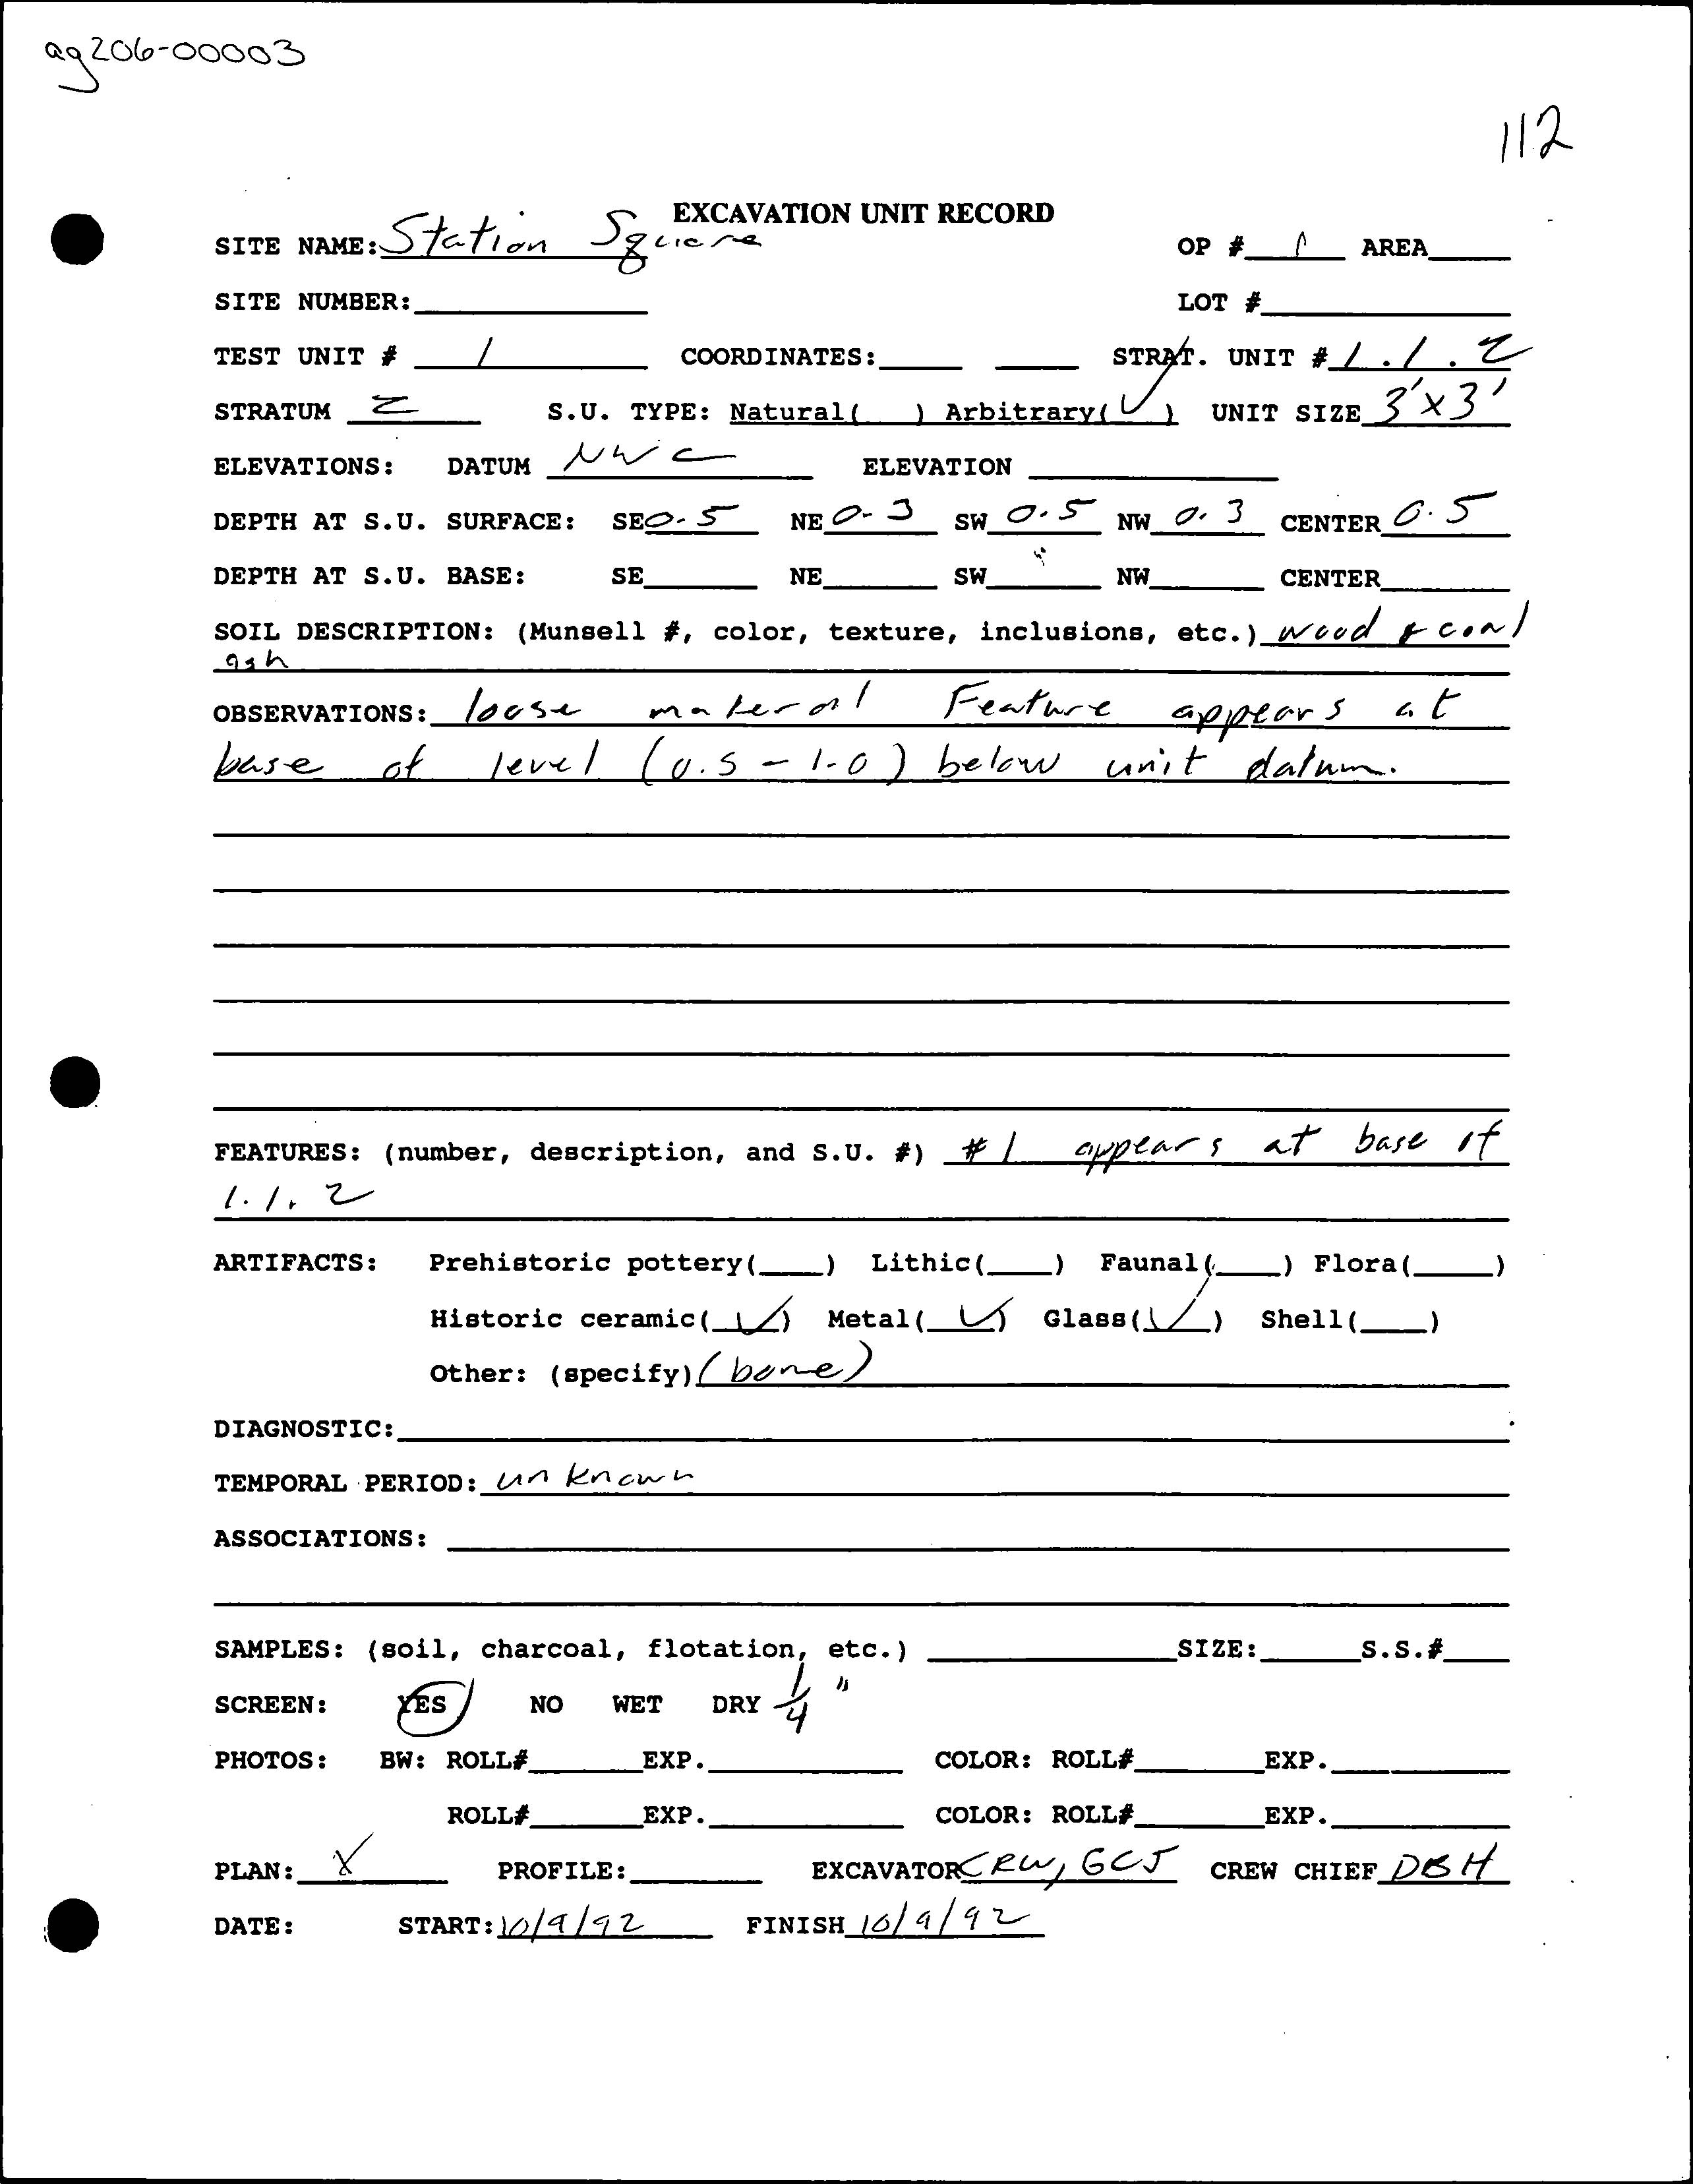 ag206-00003
112
EXCAVATION UNIT RECORD
SITE NAME: Station Square OP # 1 AREA____
SITE NUMBER:____ LOT #____
TEST UNIT # 1 COORDINATES:____ ____ STRAT. UNIT # 1.1.2
STRATUM 2 S.U. TYPE: Natural(  ) Arbitrary(✓) UNIT SIZE 3'x3'
ELEVATIONS: DATUM NWC ELEVATION ____
DEPTH AT S.U. SURFACE: SE 0.5 NE 0.3 SW 0.5 NW 0.3 CENTER 0.5
DEPTH AT S.U. BASE: SE____ NE____ SW____ NW____ CENTER____
SOIL DESCRIPTION: (Munsell #, color, texture, inclusions, etc.) wood & coal
ash
OBSERVATIONS: loose material Feature appears at
base of level (0.5 - 1.0) below unit datum.
FEATURES: (number, description, and S.U. #) #1 appears at base of
1.1.2
ARTIFACTS: Prehistoric pottery(____) Lithic(____) Faunal(____) Flora(____)
Historic ceramic(✓) Metal(✓) Glass(✓) Shell(____)
Other: (specify) (bone)
DIAGNOSTIC:____
TEMPORAL PERIOD: unknown
ASSOCIATIONS: ____
SAMPLES: (soil, charcoal, flotation, etc.) ____SIZE:____S.S.#____
SCREEN: YES NO WET DRY 1/4"
PHOTOS: BW: ROLL#____EXP.____ COLOR: ROLL#____EXP.____
ROLL#____EXP.____ COLOR: ROLL#____EXP.____
PLAN: X PROFILE:____ EXCAVATOR CRW, GCJ CREW CHIEF DBH
DATE: START: 10/9/92 FINISH 10/9/92